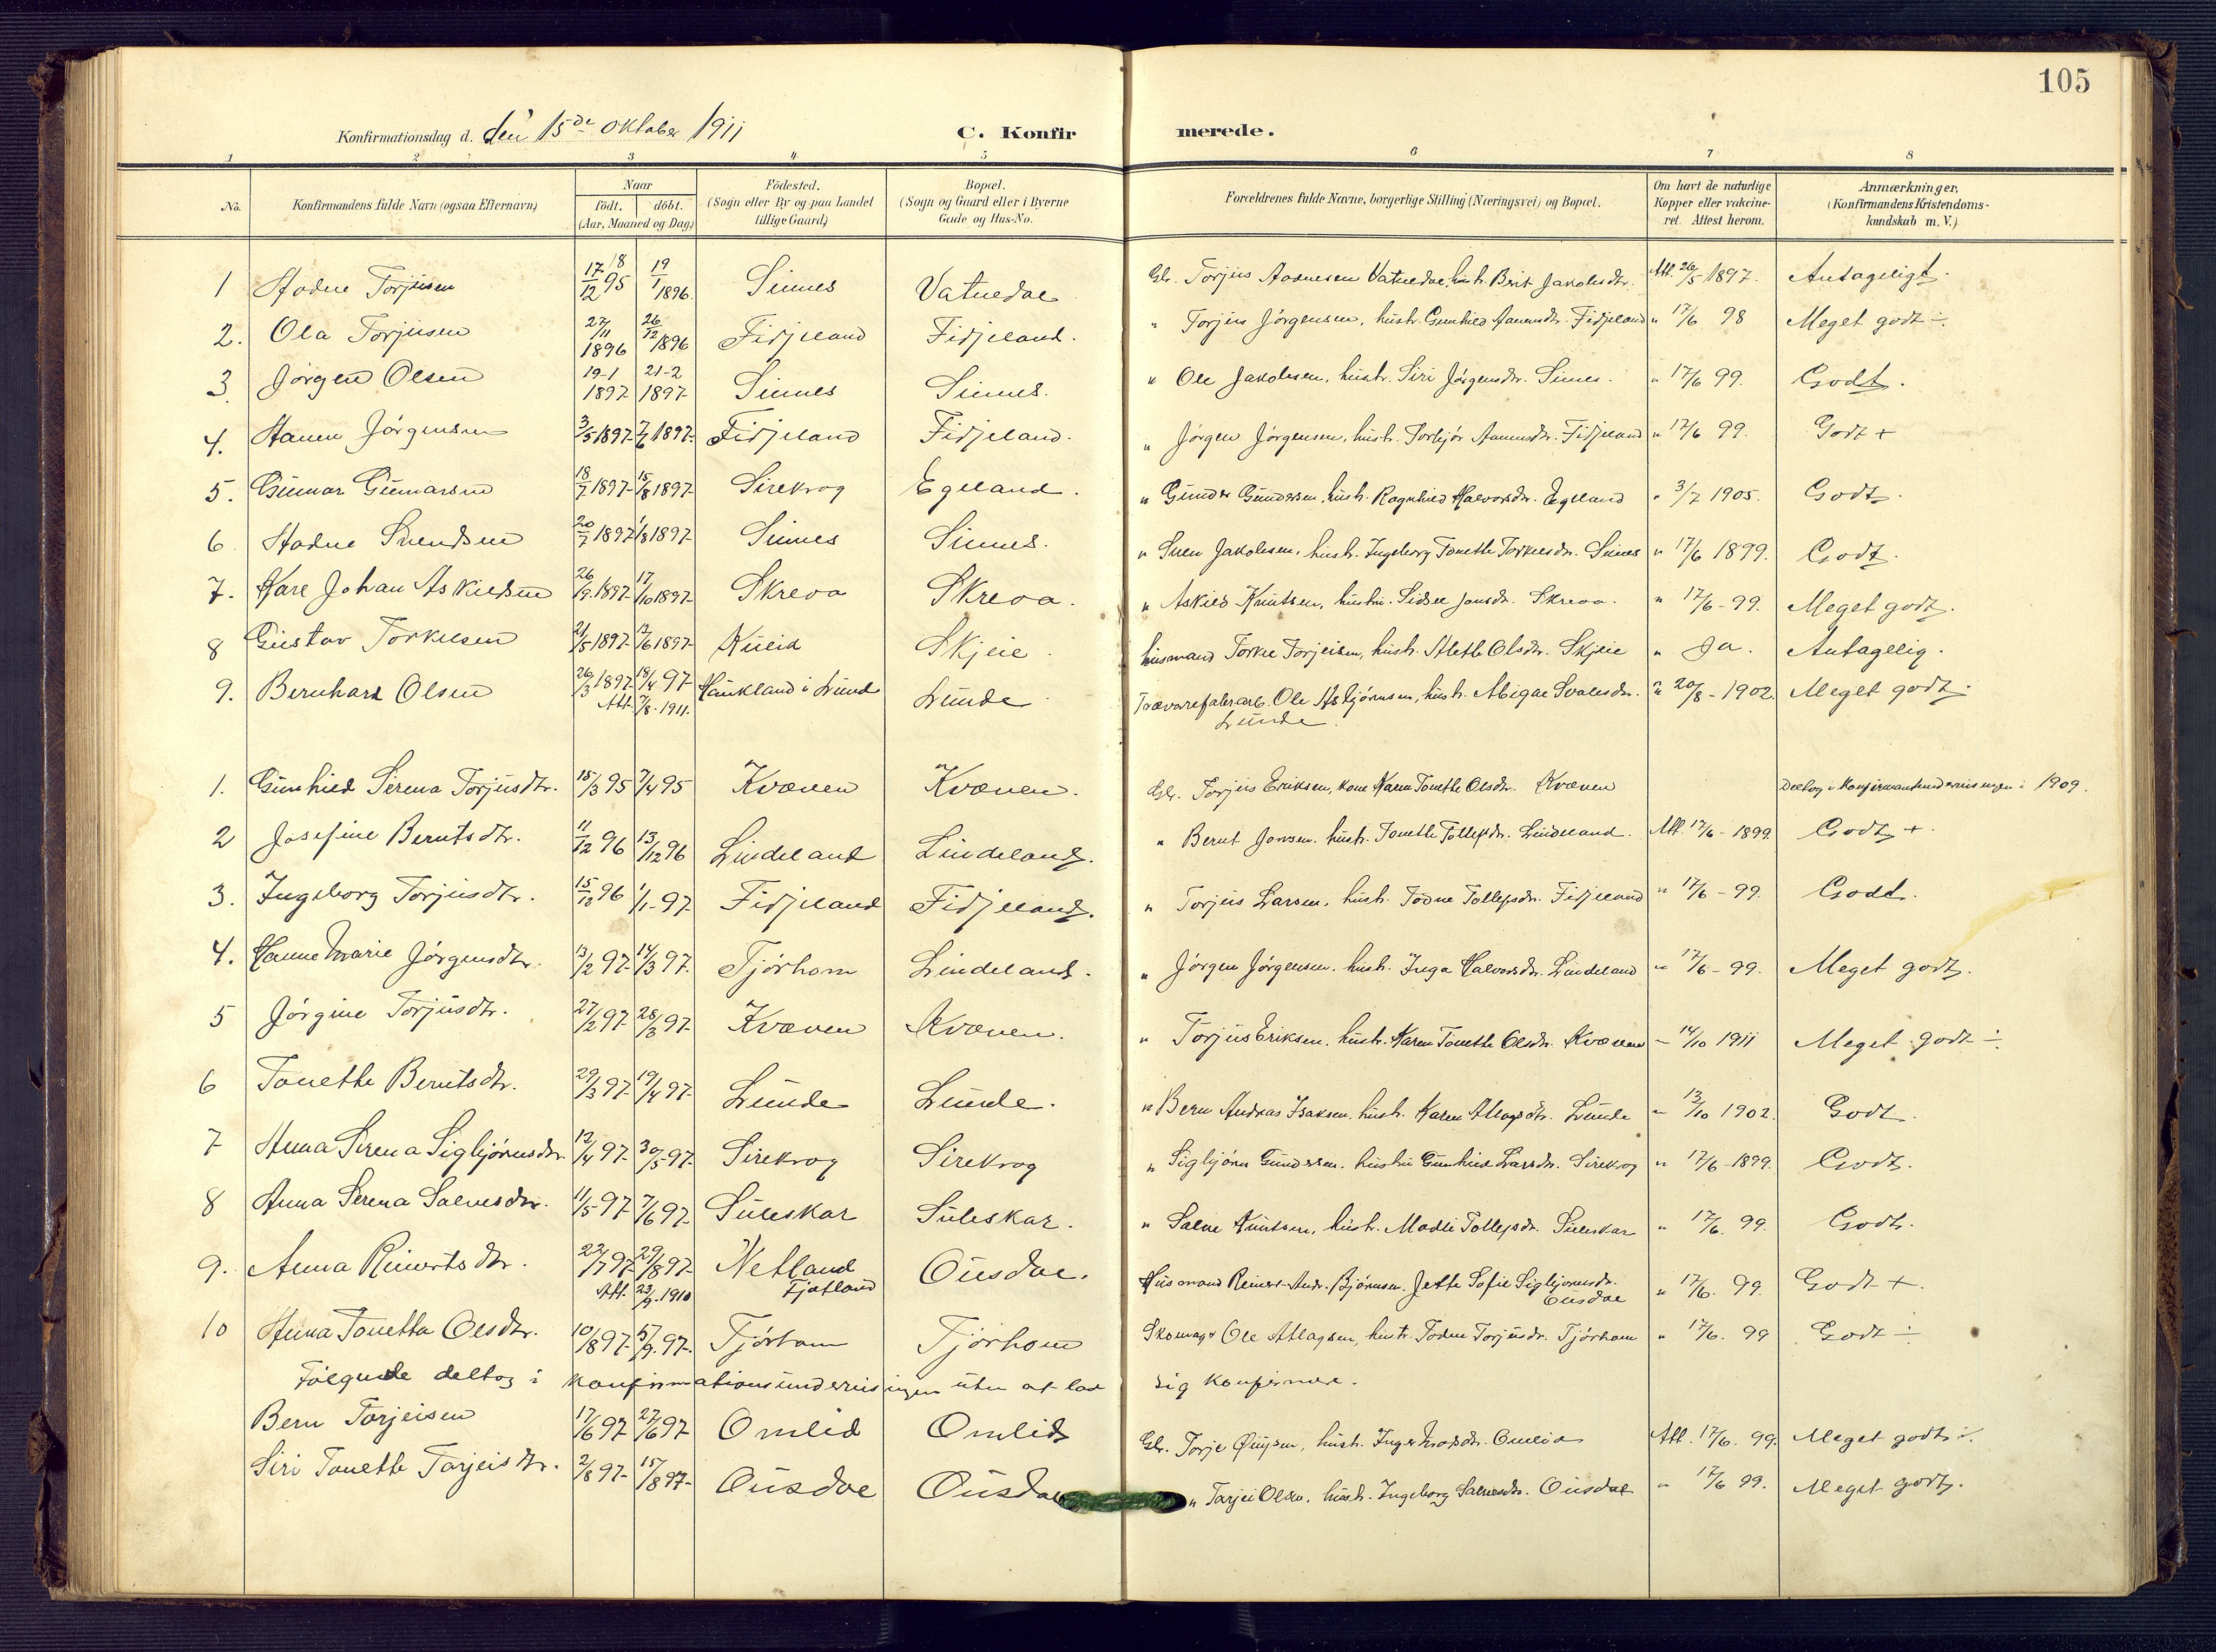 105
Konfirmationsdag d. den 15de Oktober 1911
C. Konfirmerede.
1 2 3 4 5 6 7 8
No. Konfirmandens fulde Navn (ogsaa Efternavn) Naar Født. døbt. (Aar, Maaned og Dag) Fødested. (Sogn eller By og paa Landet tillige Gaard) Bopæl. (Sogn og Gaard eller i Byerne Gade og Hus-No. Forældrenes fulde Navne, borgerlige Stilling (Næringsvei) og Bopæl. Om havt de naturlige Kopper eller vakcineret. Attest herom. Anmærkninger. (Konfirmandens Kristendomskundskab m.V.)
1 Hadne Torjusen 17/12 1895 19/1 1896 Sinnes Vatnedal Gbr. Torjus Aadnesen Vatnedal, hustr. Berit Jakobsdtr. Att. 26/5 1897. Antageligt.
2. Ola Torjusen 27/11 1896 26/12 1896 Fidjeland Fidjeland. " Torjus Jørgensen, hustr. Gunhild Hanensdtr. Fidjeland " 17/6 98 Meget godt ÷.
3. Jørgen Olsen 19-1 1897 21-2 1897 Sinnes Sinnes. " Ole Jakobsen, hustr. Siri Jørgensdtr. Sinnes. " 17/6 99. Godt.
4. Hanen Jørgensen 3/5 1897 7/6 1897 Fidjeland Fidjeland. " Jørgen Jørgensen, hustr. Torbjør Aanensdtr. Fidjeland " 17/6 99. Godt +
5. Gunnar Gunnarsen 18/7 1897 15/8 1897 Sirekrog Egeland. " Gunder Gundersen, hustr. Ragnhild Halvorsdtr. Egeland " 3/7 1905. Godt.
6 Hadne Svendsen 20/7 1897 1/8 1897 Sinnes Sinnes. " Sven Jakobsen, hustr. Ingeborg Tonette Torkelsdtr. Sinnes " 17/6 1899. Godt.
7. Karl Johan Askildsen 26/9 1897 17/10 1897 Skreaa Skreaa. " Askild Knutsen, hustru. Sidsel Jonsdr. Skreaa. " 17/6-99. Meget godt.
8 Gustav Torkelsen 21/5 1897 13/6 1897 Kvelid Skjeie. husmand Torkel Torjeisen, hustr. Alette Olsdtr. Skjeie " Ja. Antagelig.
9. Bernhard Olsen 26/3 1897 19/4 97 Att. 7/8-1911. Haukland i Lund Lunde Trævarefabr.arb. Ole Asbjørnsen, hustr. Abigael Svalesdr. " 20/8-1902. Meget godt.
Lunde.
1. Gunhild Serena Torjusdtr. 15/3 95 7/4 95 Kvæven Kvæven. Gbr. Torjus Eriksen, kone Karen Tonette Olsdtr. Kvæven Deltog i Konfirmantundervisningen i 1909.
2 Josefine Berntsdtr. 11/12 96 13/12 96 Lindeland Lindeland. " Bernt Jonsen. hustr. Tonette Tollefsdr. Lindeland. Att. 17/6-1899. Godt +.
3. Ingeborg Torjusdtr. 15/12 96 1/1-97 Fidjeland Fidjeland. " Torjus Larsen, hustr. Todne Tollefsdr. Fidjeland " 17/6-99. Godt.
4. Hanne Marie Jørgensdtr. 13/2 97 14/3 97. Tjørhom Lindeland. " Jørgen Jørgensen. hustr. Inga Halvorsdr. Lindeland " 17/6-99. Meget godt.
5 Jørgine Torjusdtr. 27/2 97 28/3 97 Kvæven Kvæven. " Torjus Eriksen. hustr. Karen Tonette Olsdtr. Kvæven " 14/10 1911 Meget godt ÷
6 Tonette Berntsdtr. 29/3 97 19/4 97 Lunde Lunde. " Bern Andreas Isaksen. hustr. Karen Atlagsdtr. Lunde " 13/10 1902. Godt.
7 Anna Serena Sigbjørnsdtr. 12/4 97 30/5 97 Sirekrog Sirekrog " Sigbjørn Gundersen. hustru Gunhild Larsdtr. Sirekrog " 17/6-1899. Godt.
8 Anna Serena Salvesdtr. 11/5-97 7/6 97 Suleskar Suleskar. " Salve Knutsen, hustr. Madli Tollefsdr. Suleskar " 17/6. 99. Godt.
9. Anna Reinertsdtr. 22/7 97 29/8 97 Att. 23/9 1910 Netland Fjotland Ousdal. Husmand Reinert Andr. Bjørnsen. Jette Sofie Sigbjørnsdr. Ousdal " 17/6. 99. Godt +.
10 Anna Tonetta Olsdtr. 10/8 97 5/9 97. Tjørhom Tjørhom Skomagr Ole Atlagsen, hustr. Todne Torjusdr. Tjørhom " 17/6. 99 Godt ÷
Følgende deltog i konfirmationsundervisningen uten at lade sig konfirmere.
Bern Torjeisen 17/6 97 27/6 97 Omlid Omlid Gbr. Torje Øuysen, hustr. Inger Madsdr. Omlid Att. 17/6. 99. Meget godt ÷.
Siri Tonette Tarjeisdtr. 2/8 97 15/8 97 Ousdal Ousdal " Tarjei Olsen, hustr. Ingeborg Salvesdr. Ousdal " 17/6 99. Meget godt.